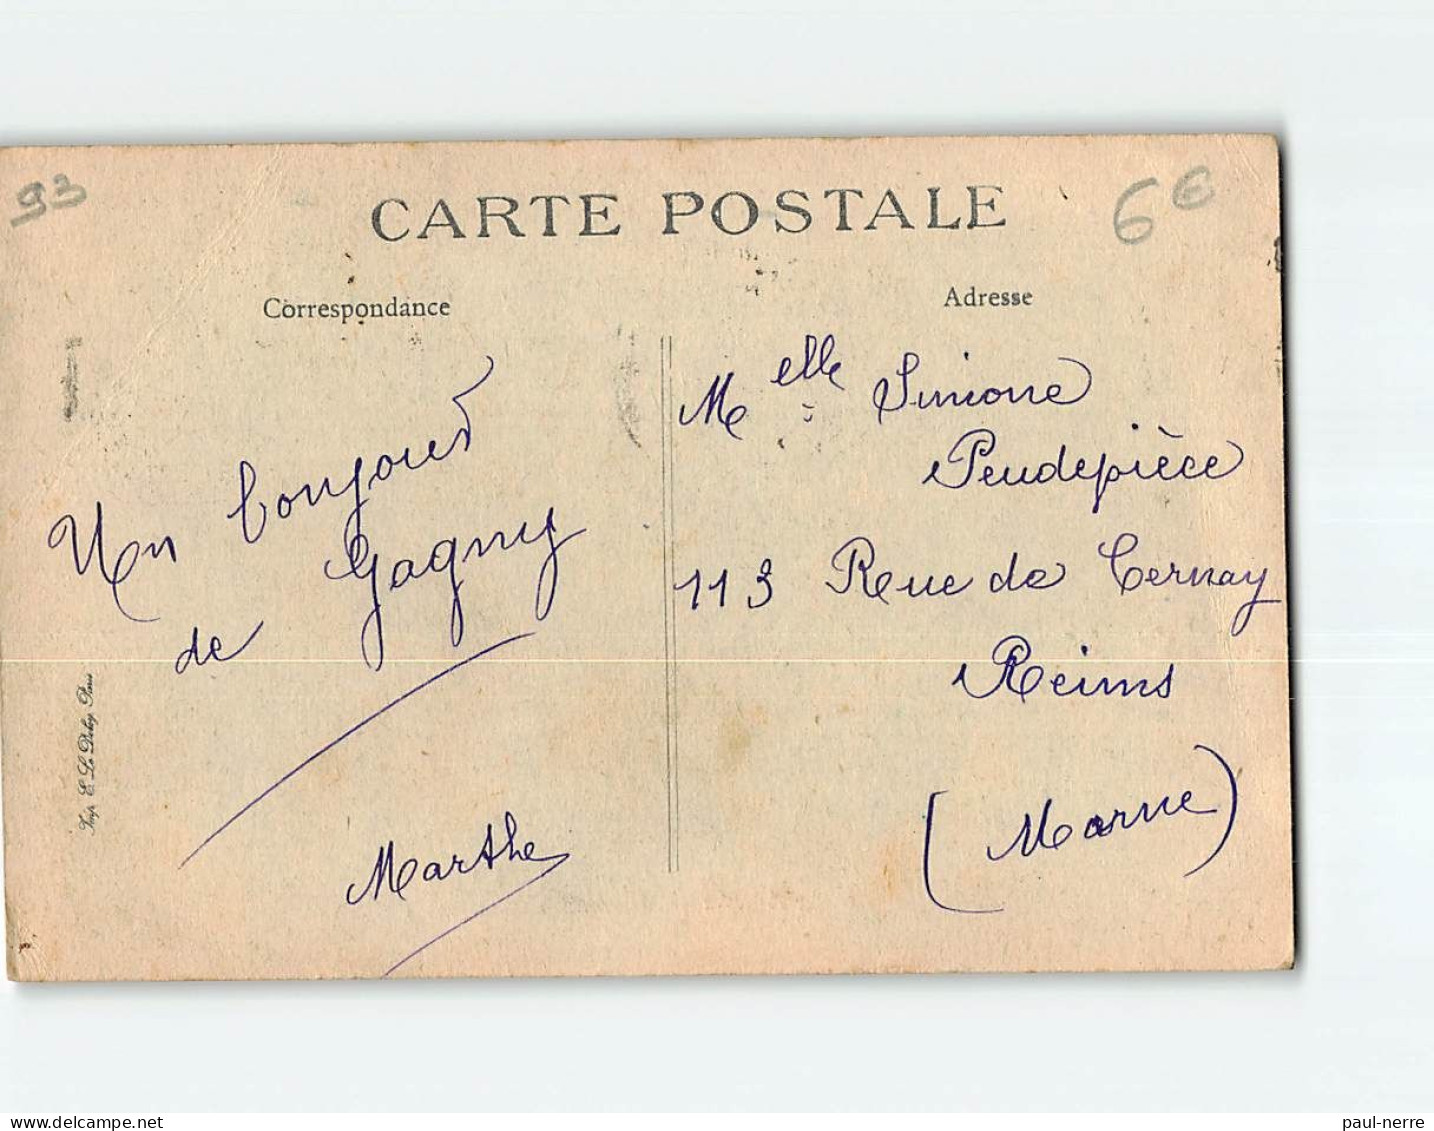 93
CARTE POSTALE
6€
Correspondance
Un bonjour
de Gagny
Marthe
Imp. E. Le Deley, Paris
Adresse
Melle Simone
Peudepièce
113 Rue de Cernay
Reims
(Marne)
delcampe.net
paul-nerre